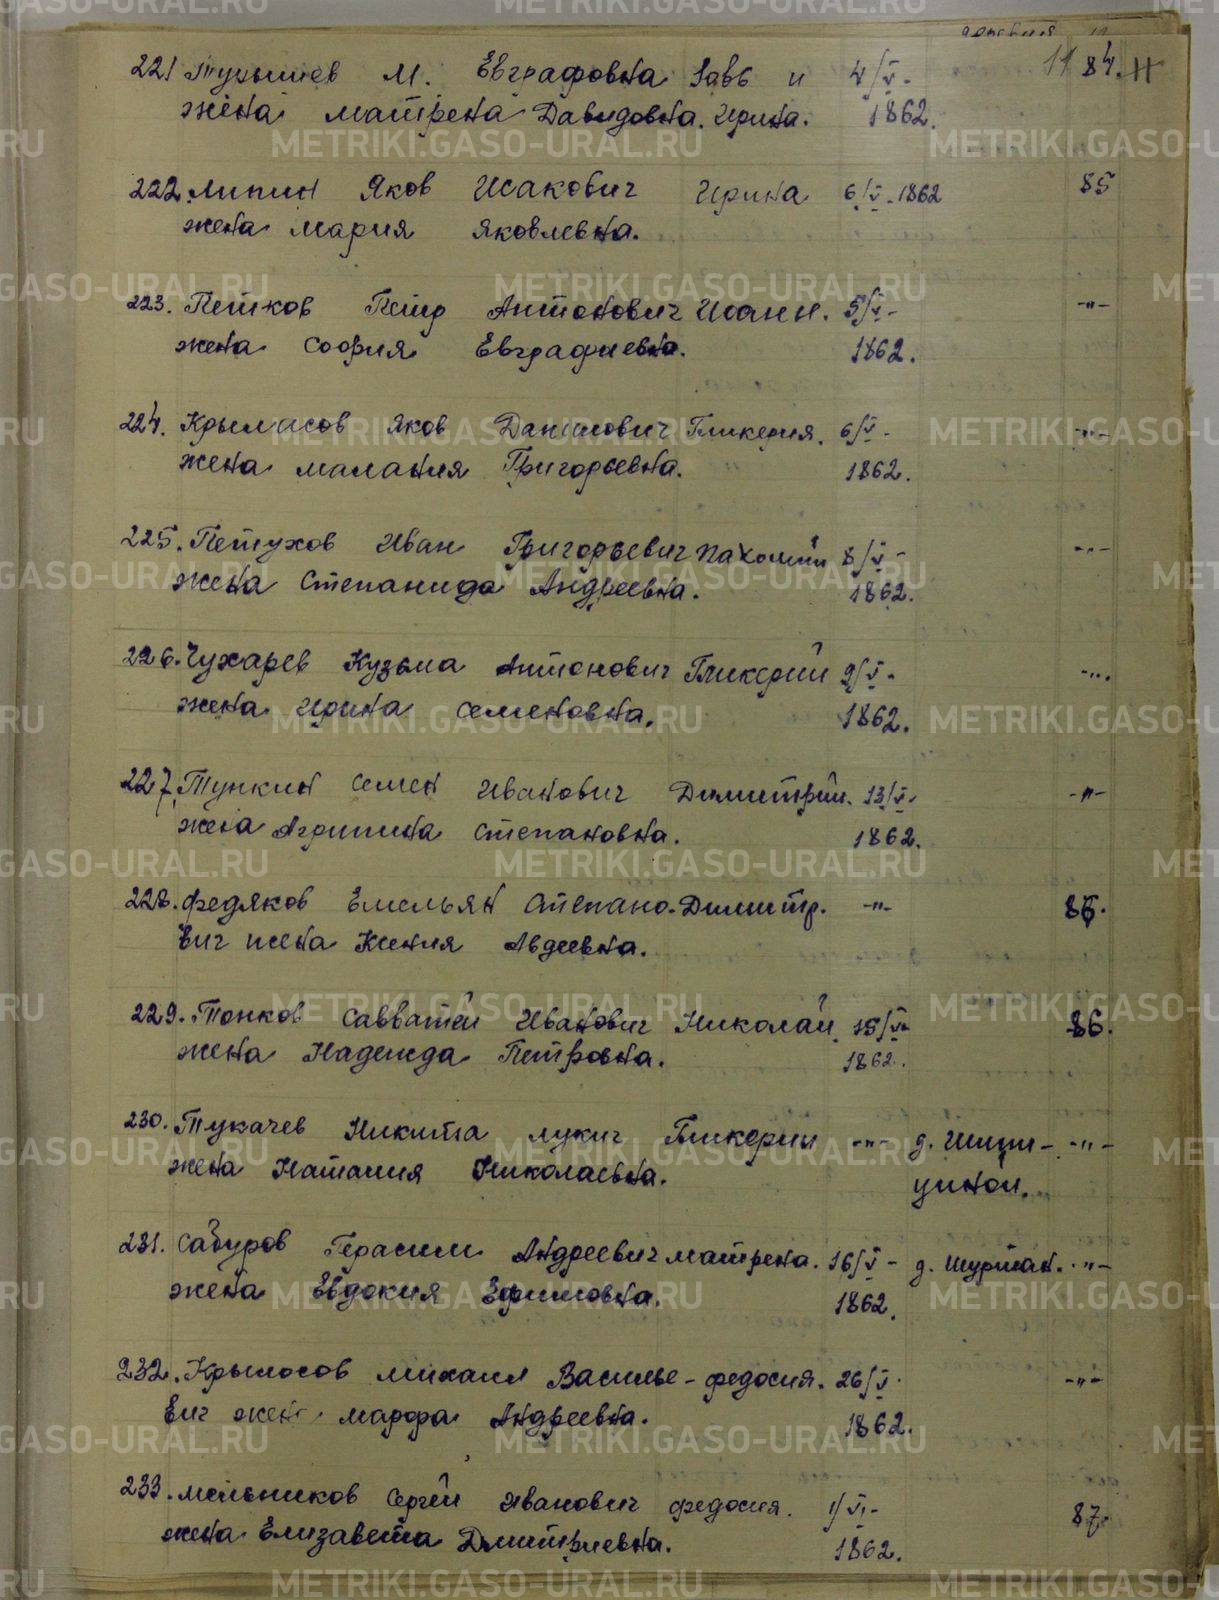 деревня 11
221 Турышев М. Евграфовна Савв и 4/V- 11 84. Н
жена Матрена Давидовна. Ирина. 1862.
222. Липин Яков Исакович Ирина 6/V-1862 85
жена Мария Яковлевна.
223. Петков Петр Антонович Иоанн. 5/V- -"-
жена София Евграфиевна. 1862.
224. Крыласов Яков Данилович Гликерия. 6/V- -"-
жена Малания Григорьевна. 1862.
225. Петухов Иван Григорьевич Пахомий 8/V- -"-
жена Степанида Андреевна. 1862.
226. Чухарев Кузьма Антонович Гликерий 9/V- -"-
жена Ирина Семеновна. 1862.
227. Тункин Семен Иванович Димитрий. 13/V- -"-
жена Агрипина Степановна. 1862.
228. Федяков Емельян Степано- Димитр. -"- 86.
вич жена Ксения Авдеевна.
229. Тонков Савватей Иванович Николай 15/V- 86.
жена Надежда Петровна. 1862.
230. Тукачев Никита Лукич Гликерии -"- д. Шици- -"-
жена Наталия Николаевна. уиной.
231. Сабуров Герасим Андреевич Матрена. 16/V- д. Шуртан. -"-
жена Евдокия Ефимовна. 1862.
232. Крылосов Михаил Василье- Федосия. 26/V. -"-
вич жена Марфа Андреевна. 1862.
233. Мельников Сергей Иванович Федосия. 1/VI- 87.
жена Елизавета Дмитриевна. 1862.